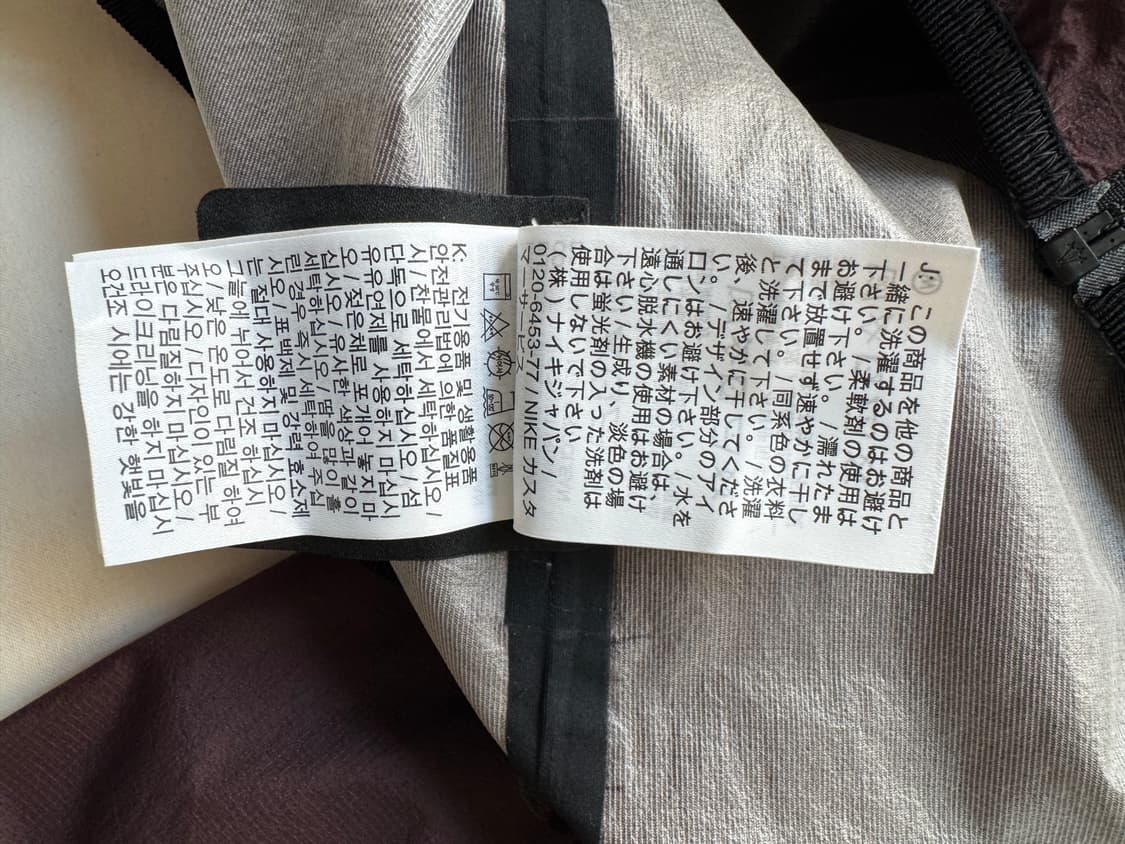 J:
この商品を他の商品と
一緒に洗濯するのはお避け
下さい。/柔軟剤の使用は
お避け下さい。/濡れたま
まで放置せず速やかに干し
て下さい。/同系色の衣料
と洗濯して下さい。/洗濯
後、速やかに干してくださ
い。/デザイン部分のアイ
ロンはお避け下さい。/水を
通しにくい素材の場合は、
遠心脱水機の使用はお避け
下さい/生成り、淡色の場
合は蛍光剤の入った洗剤は
使用しないで下さい
(株)ナイキジャパン/
0120-6453-77 NIKE カスタ
マーサービス
K: 전기용품 및 생활용품
안전관리법에 의한 품질표
시 / 찬물에서 세탁하십시오 /
단독으로 세탁하십시오 / 섬
유유연제를 사용하지 마십시
오 / 젖은채로 포개어 놓지 마
십시오 / 유사한 색상과 같이
세탁하십시오 / 땀을 많이 흘
린 경우 즉시 세탁하여 주십
시오 / 표백제 및 강력 효소제
는 절대 사용하지 마십시오 /
그늘에 뉘어서 건조 하십시
오 / 낮은 온도로 다림질 하여
주십시오 / 디자인이 있는 부
분은 다림질하지 마십시오 /
드라이크리닝을 하지 마십시
오건조 시에는 강한 햇빛을